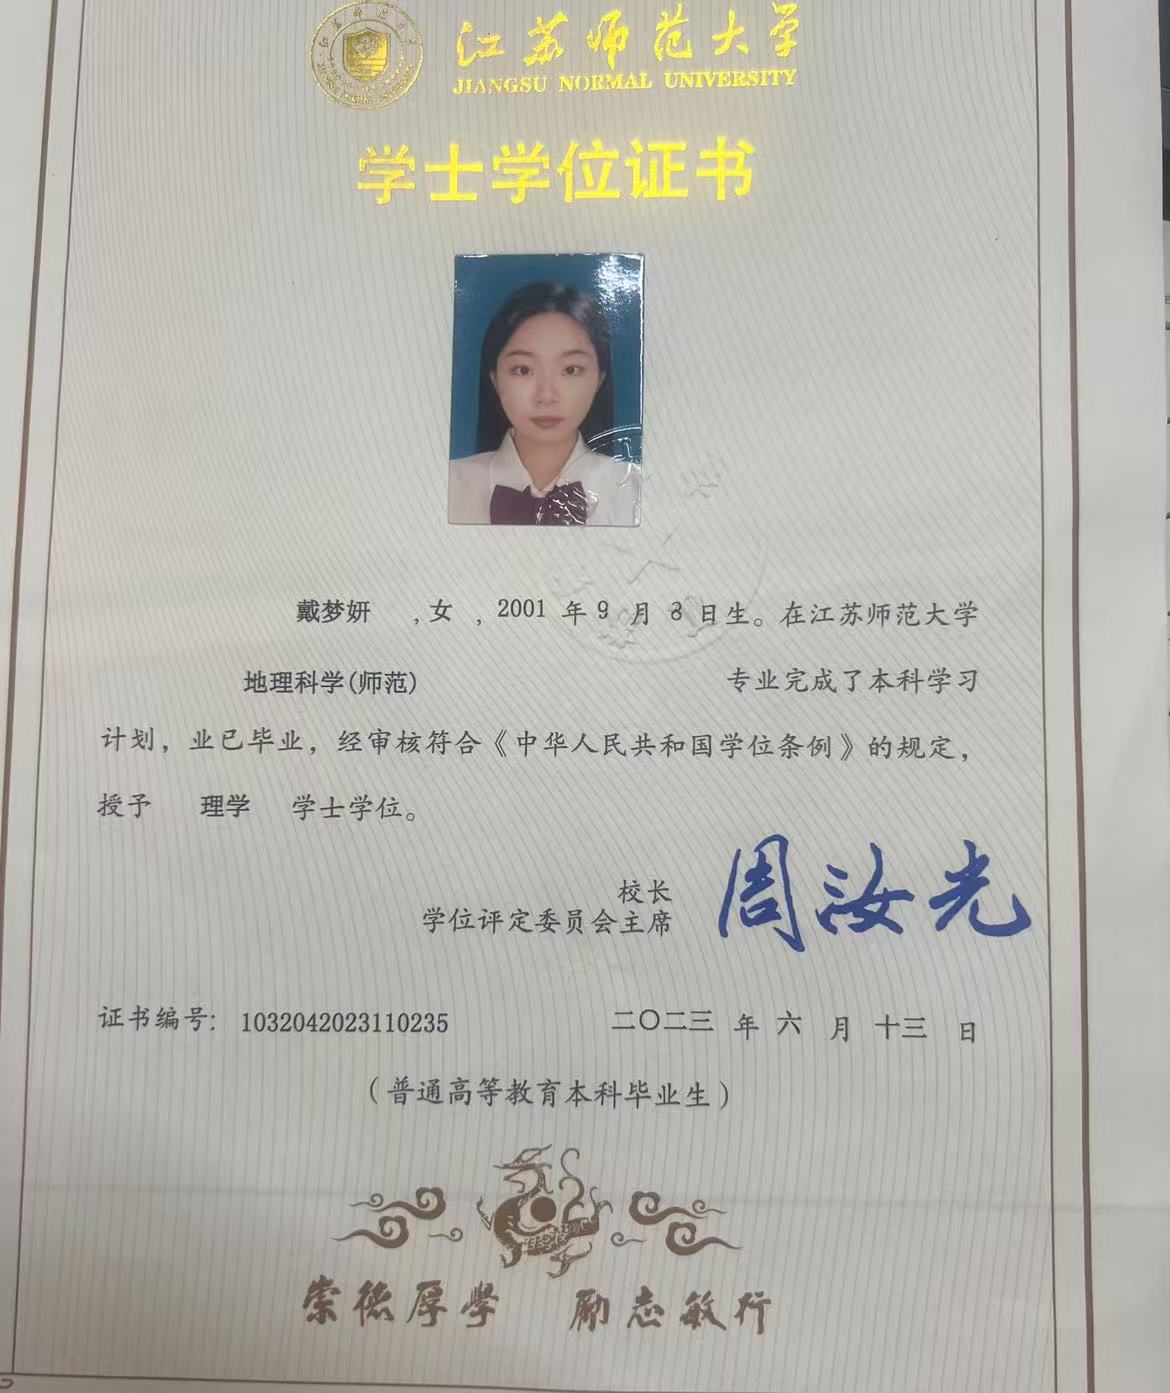 江苏师范大学
JIANGSU NORMAL UNIVERSITY
学士学位证书
戴梦妍 ,女 , 2001 年 9 月 3 日生。在江苏师范大学
地理科学(师范) 专业完成了本科学习
计划，业已毕业，经审核符合《中华人民共和国学位条例》的规定，
授予 理学 学士学位。
校长
学位评定委员会主席
周汝光
证书编号: 1032042023110235 二〇二三 年 六 月 十三 日
(普通高等教育本科毕业生)
崇德厚學 励志敏行